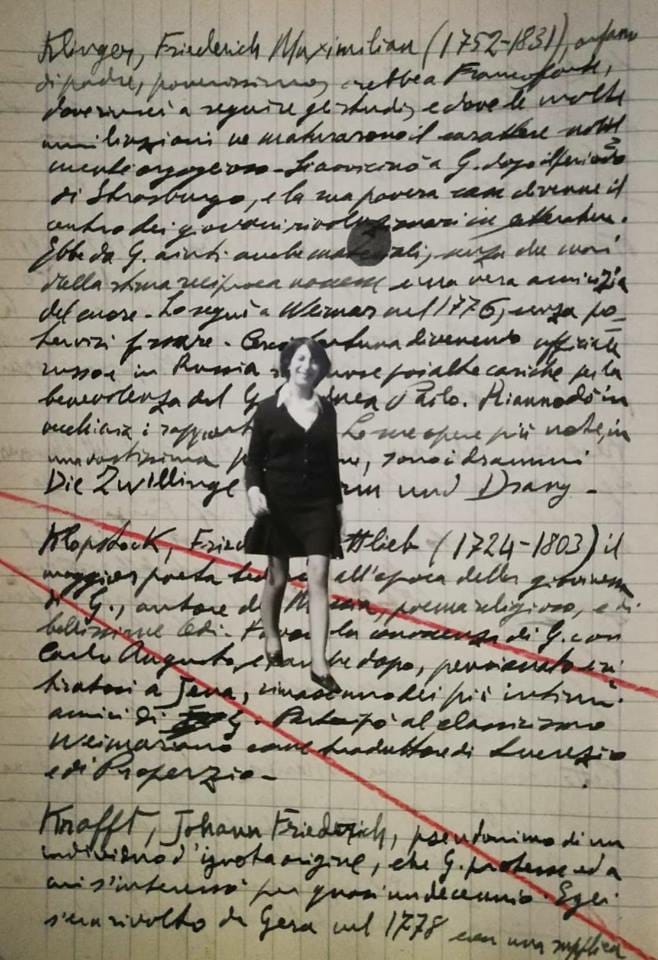 Klinger, Friederich Maximilian (1752-1831), orfano
di padre, poverissimo, crebbe a Francoforte,
dove riuscì a seguire gli studi, e dove le molte
umiliazioni ne maturarono il carattere nobil
mente orgoglioso. Si avvicinò a G. dopo il periodo
di Strasburgo, e la sua povera casa divenne il
centro dei giovani rivoluzionari in letteratura.
Ebbe da G. aiuti anche materiali, senza che mai
dalla stima reciproca nascesse una vera amicizia
del cuore. Lo seguì a Weimar nel 1776, senza po
tervisi fissare. Cercò fortuna divenendo ufficiale
russo e in Russia poi alte cariche per la
benevolenza del Paolo. Riannodò in
vecchiaia i rapporti Le sue opere più note, in
una vastissima sono i drammi
Die Zwillinge und Drang -
Klopstock, Frie ttlieb (1724-1803) il
maggior poeta all'epoca della giovinezza
di G., autore de poema religioso, e di
bellissime Odi. la conoscenza di G. con
Carlo Augusto, e anche dopo, pensionato e ri
tiratosi a Jena, rimase uno dei più intimi
amici di G. Partecipò al classicismo
Weimariano come traduttore di Lucrezio
e di Properzio -
Krafft, Johann Friederich, pseudonimo di un
individuo d'ignota origine, che G. protesse ed a
cui s'interessò per quasi un decennio. Egli
s'era rivolto da Gera nel 1778 con una supplica